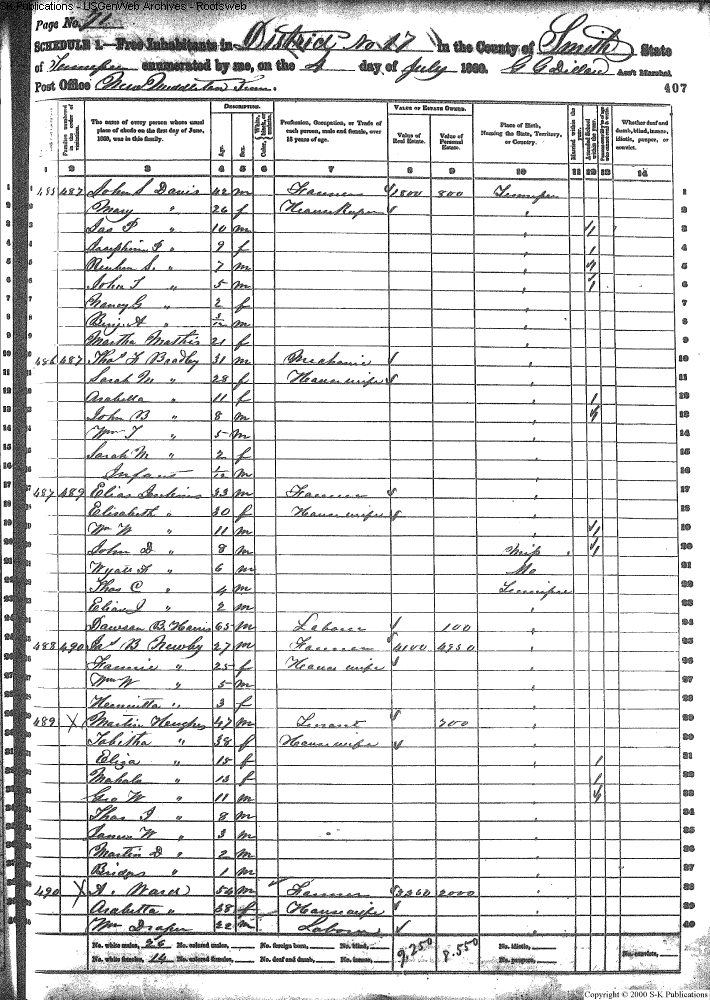 S-K Publications - USGenWeb Archives - Rootsweb
Page No. 71
SCHEDULE 1.—Free Inhabitants in District No 17 in the County of Smith State
of Tennessee enumerated by me, on the 4 day of July 1860. Ass't Marshal.
Post Office New Middleton Tenn. 407
DESCRIPTION. VALUE OF ESTATE OWNED.
The name of every person whose usual place of abode on the first day of June, 1860, was in this family.
Age. Sex. Color,
Profession, Occupation, or Trade of each person, male and female, over 15 years of age.
Value of Real Estate. Value of Personal Estate.
Place of Birth, Naming the State, Territory, or Country.
Married within the year. Attended School within the year.
Whether deaf and dumb, blind, insane, idiotic, pauper, or convict.
1 2 3 4 5 6 7 8 9 10 11 12 13 14
1 485 487 John S Davis 42 m Farmer 1800 800 Tennessee 1
2 Mary " 26 f House Keeper " 2
3 Jas P " 10 m " 1 3
4 Josephine P " 9 f " 1 4
5 Reuben S. " 7 m " 1 5
6 John T " 5 m " 1 6
7 Nancy G " 2 f " 7
8 Benj. A 3/12 m " 8
9 Martha Mathis 21 f " 9
10 486 487 Thos F Bradley 31 m Mechanic " 10
11 Sarah M " 28 f House wife " 11
12 Arabella " 11 f " 1 12
13 John B " 8 m " 1 13
14 Wm T " 5 m " 14
15 Sarah M " 2 f " 15
16 Infant 1/12 m " 16
17 487 489 Elias Jenkins 33 m Farmer " 17
18 Elisabeth " 30 f House wife " 18
19 Wm W " 11 m " 1 19
20 John D " 8 m Miss 1 20
21 Wyatt " 6 m Mo 21
22 Thos C " 4 m Tennessee 22
23 Elias J " 2 m " 23
24 Dawson B Harris 65 m Laborer 100 " 24
25 488 490 Jas B Newby 27 m Farmer 4100 4950 " 25
26 Fannie " 25 f House wife " 26
27 Wm W " 5 m " 27
28 Henrietta " 3 f " 28
29 489 X Martin Hughes 47 m Tenant 700 " 29
30 Tabitha " 38 f House wife " 30
31 Eliza " 15 f " 1 31
32 Mahala " 13 f " 1 32
33 Geo W " 11 m " 1 33
34 Thos J " 8 m " 34
35 James W " 3 m " 35
36 Martin D " 2 m " 36
37 Bridges " 1 m " 37
38 490 X A. Ward 56 m Farmer 2000 " 38
39 Arabella " 38 f House wife " 39
40 Wm Draper 22 m Laborer " 40
No. white males, 26 No. colored males, No. foreign born, No. blind, 9,250 8.550 No. idiotic,
No. white females, 14 No. colored females, No. deaf and dumb, No. insane, No. paupers, No. convicts,
Copyright © 2000 S-K Publications